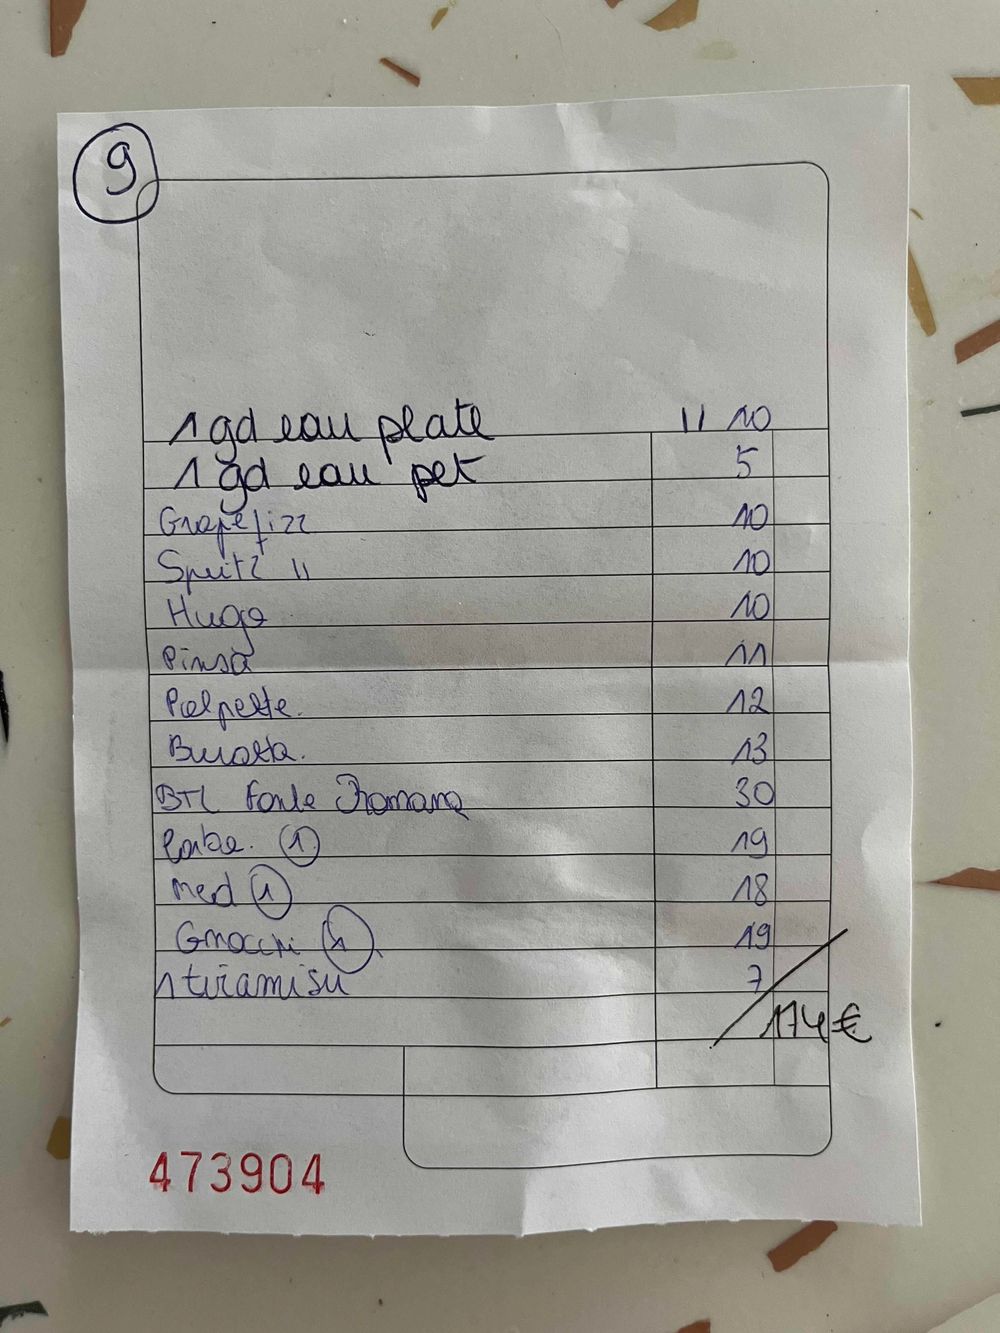 9
1 gd eau plate 11 10
1 gd eau pet 5
Grapefizz 10
Spritz 11 10
Hugo 10
Pinsa 11
Polpette. 12
Burratta. 13
BTL Fonte Romana 30
1 19
med 1 18
Gnocchi 1 19
1 tiramisu 7
174€
473904